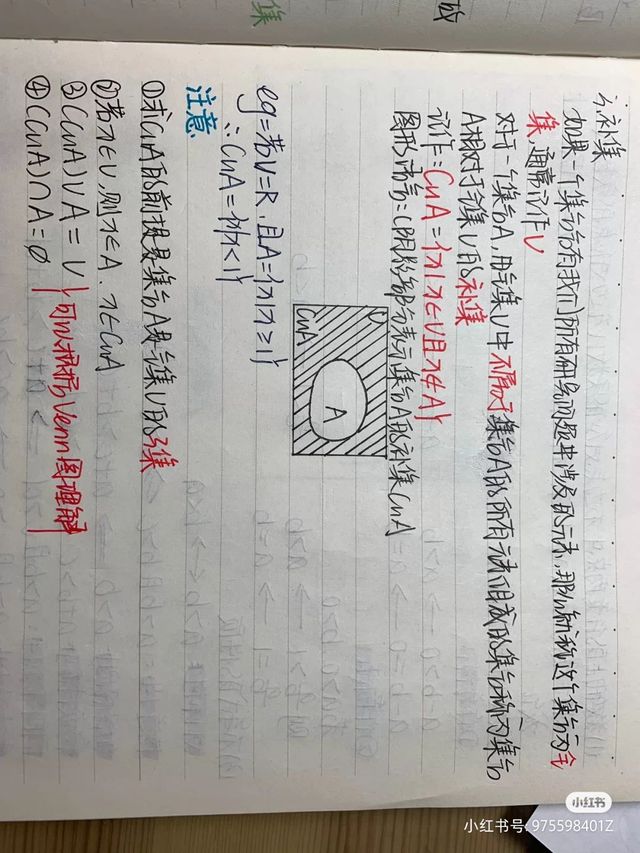 5、补集
如果一个集合含有我们所有研究问题中涉及的元素，那么就称这个集合为全
集，通常记作U
对于一个集合A，用全集U中不属于集合A的所有元素组成的集合称为集合
A相对于全集U的补集
记作：CuA={x|x∈U且x∉A}
图形语言：(阴影部分表示集合A的补集CuA
U
A
CuA
eg=若U=R，且A={x|x≥1}
∴CuA={x|x<1}
注意
①求CuA的前提是集合A是全集U的子集
②若x∈U，则x∈A．x∈CuA
③(CuA)∪A=U
④(CuA)∩A=∅
}可以根据Venn图理解
集
小红书
小红书号:975598401Z